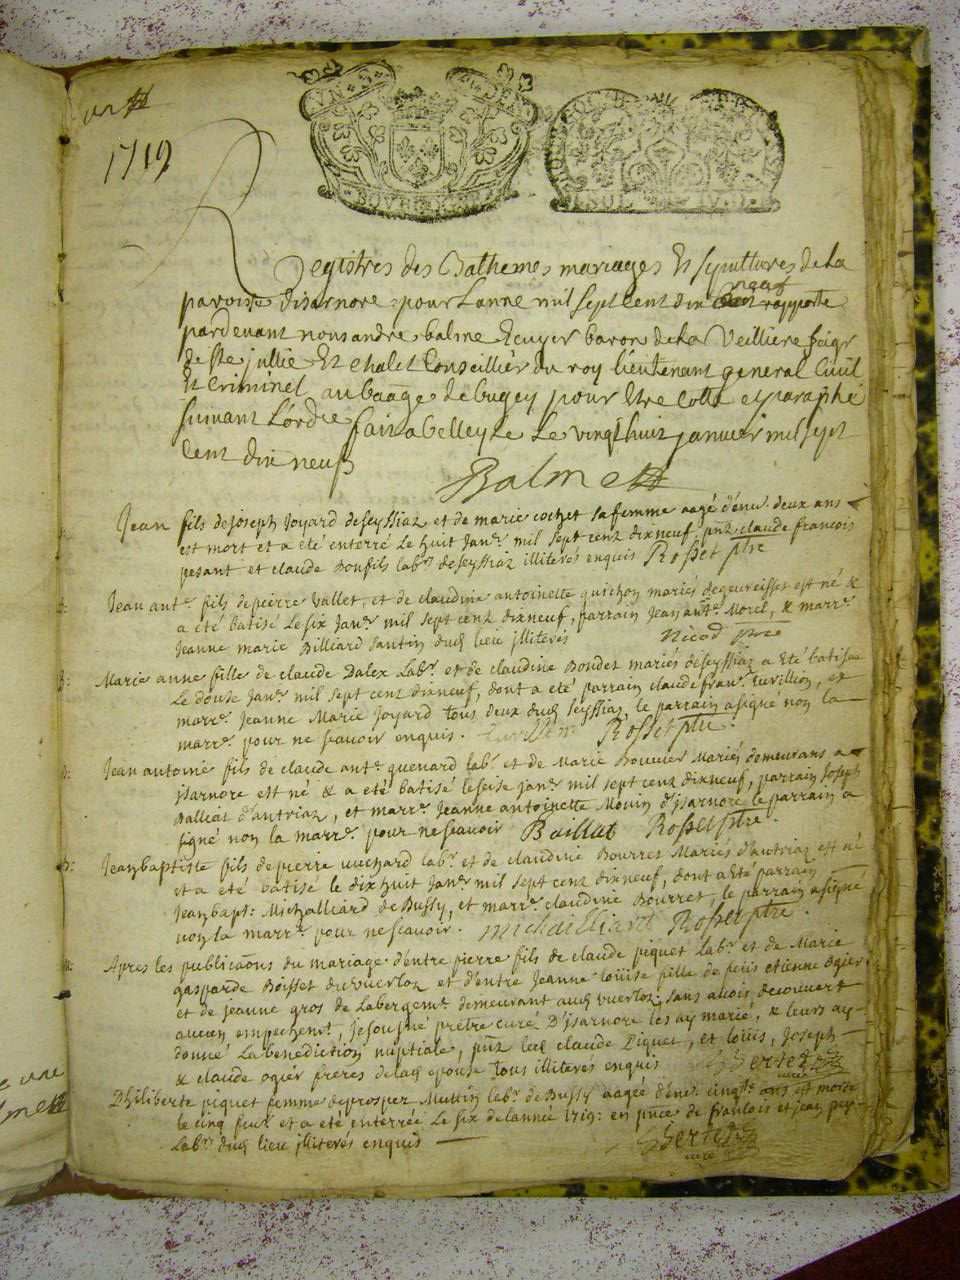 un
1719
Registres des Bathemes mariages Et sepultures de La
paroisse disarnore pour Lanne mil sept cent dix neuf rapporte
pardevant nous andre balme Ecuyer baron de La Veilliere seigr
de Ste jullie Et chalet Conseillier du roy lieutenant general Civil
Et Criminel au baage de bugey pour Etre Cotté et paraphé
suivant L'ordre fait a belley ce Le vingt huit janvier mil sept
Cent dix neuf
Balme
Jean fils de joseph Joyard de seyssiaz et de marie cochet sa femme aagé d'env. deux ans
est mort et a été enterré Le huit Janr. mil sept cent dixneuf, pnt claude francois
pesant et claude Bonfils labr. de seyssiaz illiterés enquis Rosset ptre
2: Jean ant. fils de pierre Vallet, et de claudine antoinette guichon mariés de geureisset est né &
a été batisé Le six Janr. mil sept cent dixneuf, parrain Jean ant. Morel, & marr.
Jeanne marie Billiard dud. lieu illiterés Nicod ptre
3: Marie anne fille de claude Dalex Labr. et de claudine Boudet mariés de seyssiaz a Eté batisée
Le douse Janr. mil sept cent dixneuf, dont a été parrain claude fran. Euvillion, et
marr. Jeanne Marie Joyard tous deux dud. seyssiaz, le parrain a signé non la
marr. pour ne scavoir enquis. Rosset ptre.
4: Jean antoine fils de claude ant. quenard labr. et de Marie Bouvier Mariés demeurans a
jsarnore est né & a été batisé le seise janr. mil sept cent dixneuf, parrain Joseph
Balliat d'autriaz, et marr. Jeanne antoinette Mouin d'jsarnore le parrain a
signé non la marr. pour ne scavoir Baillat Rosset ptre.
5: Jean baptiste fils de pierre vuchard labr. et de claudine Bourret Mariés d'autriaz est né
et a été batisé le dix huit Janr. mil sept cent dixneuf, dont a Eté parrain
Jean bapt: Michalliard de Bussy, et marr. claudine Bourret, le parrain a signé
non la marr. pour ne scavoir. michailliard Rosset ptre.
Apres les publicaons du mariage d'entre pierre fils de claude piquet Labr. et de Marie
gasparde Boisset du vuerloz et d'entre Jeanne loüise fille de feu etienne ogier
et de jeanne gros de Labergemt. demeurant aud. vuerloz, sans avoir decouvert
aucun empechemt., je soussigné prêtre curé D'jsarnore les ay marié, & leurs ay
donné La benediction nuptiale, pnt led. claude Piquet, et loüis, Joseph
& claude ogier freres de lad. epouse tous illiteres enquis
Philiberte piquet femme de prosper Mussin labr. de Bussy aagée d'env. cinqte. ans est morte
le cinq feur. et a eté enterrée Le six de lannée 1719: en pnce. de francois et jean
Labr. dud. lieu illiterés enquis
curé